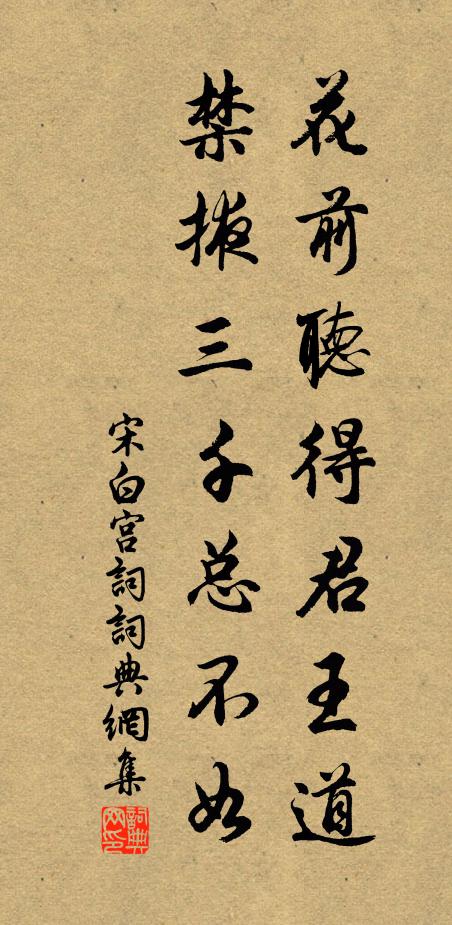 花前聽得君王道
禁掖三千总不如
宋白宫詞詞典網集
詞典網印